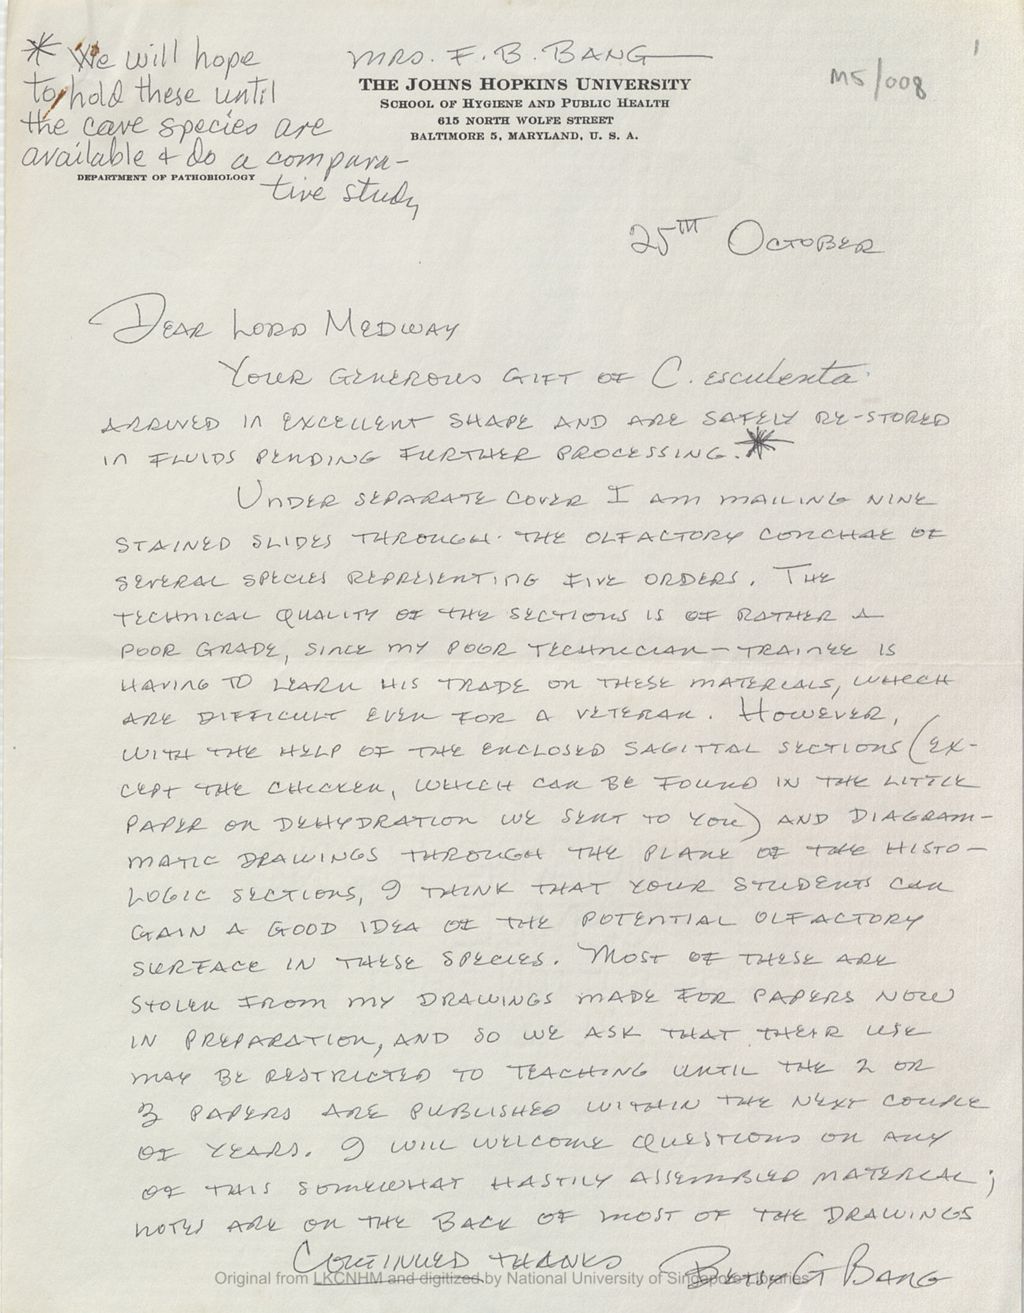 * We will hope
to hold these until
the cave species are
available & do a compara-
tive study
MRS. F. B. BANG
THE JOHNS HOPKINS UNIVERSITY
SCHOOL OF HYGIENE AND PUBLIC HEALTH
615 NORTH WOLFE STREET
BALTIMORE 5, MARYLAND, U. S. A.
MS/008
1
DEPARTMENT OF PATHOBIOLOGY
25TH OCTOBER
DEAR LORD MEDWAY
YOUR GENEROUS GIFT OF C. esculenta
ARRIVED IN EXCELLENT SHAPE AND ARE SAFELY RE-STORED
IN FLUIDS PENDING FURTHER PROCESSING.*
UNDER SEPARATE COVER I AM MAILING NINE
STAINED SLIDES THROUGH THE OLFACTORY CONCHAE OF
SEVERAL SPECIES REPRESENTING FIVE ORDERS. THE
TECHNICAL QUALITY OF THE SECTIONS IS OF RATHER A
POOR GRADE, SINCE MY POOR TECHNICIAN-TRAINEE IS
HAVING TO LEARN HIS TRADE ON THESE MATERIALS, WHICH
ARE DIFFICULT EVEN FOR A VETERAN. HOWEVER,
WITH THE HELP OF THE ENCLOSED SAGITTAL SECTIONS (EX-
CEPT THE CHICKEN, WHICH CAN BE FOUND IN THE LITTLE
PAPER ON DEHYDRATION WE SENT TO YOU) AND DIAGRAM-
MATIC DRAWINGS THROUGH THE PLANE OF THE HISTO-
LOGIC SECTIONS, I THINK THAT YOUR STUDENTS CAN
GAIN A GOOD IDEA OF THE POTENTIAL OLFACTORY
SURFACE IN THESE SPECIES. MOST OF THESE ARE
STOLEN FROM MY DRAWINGS MADE FOR PAPERS NOW
IN PREPARATION, AND SO WE ASK THAT THEIR USE
MAY BE RESTRICTED TO TEACHING UNTIL THE 2 OR
3 PAPERS ARE PUBLISHED WITHIN THE NEXT COUPLE
OF YEARS. I WILL WELCOME QUESTIONS ON ANY
OF THIS SOMEWHAT HASTILY ASSEMBLED MATERIAL;
NOTES ARE ON THE BACK OF MOST OF THE DRAWINGS
CONTINUED THANKS BETSY G BANG
Original from LKCNHM and digitized by National University of Singapore Libraries